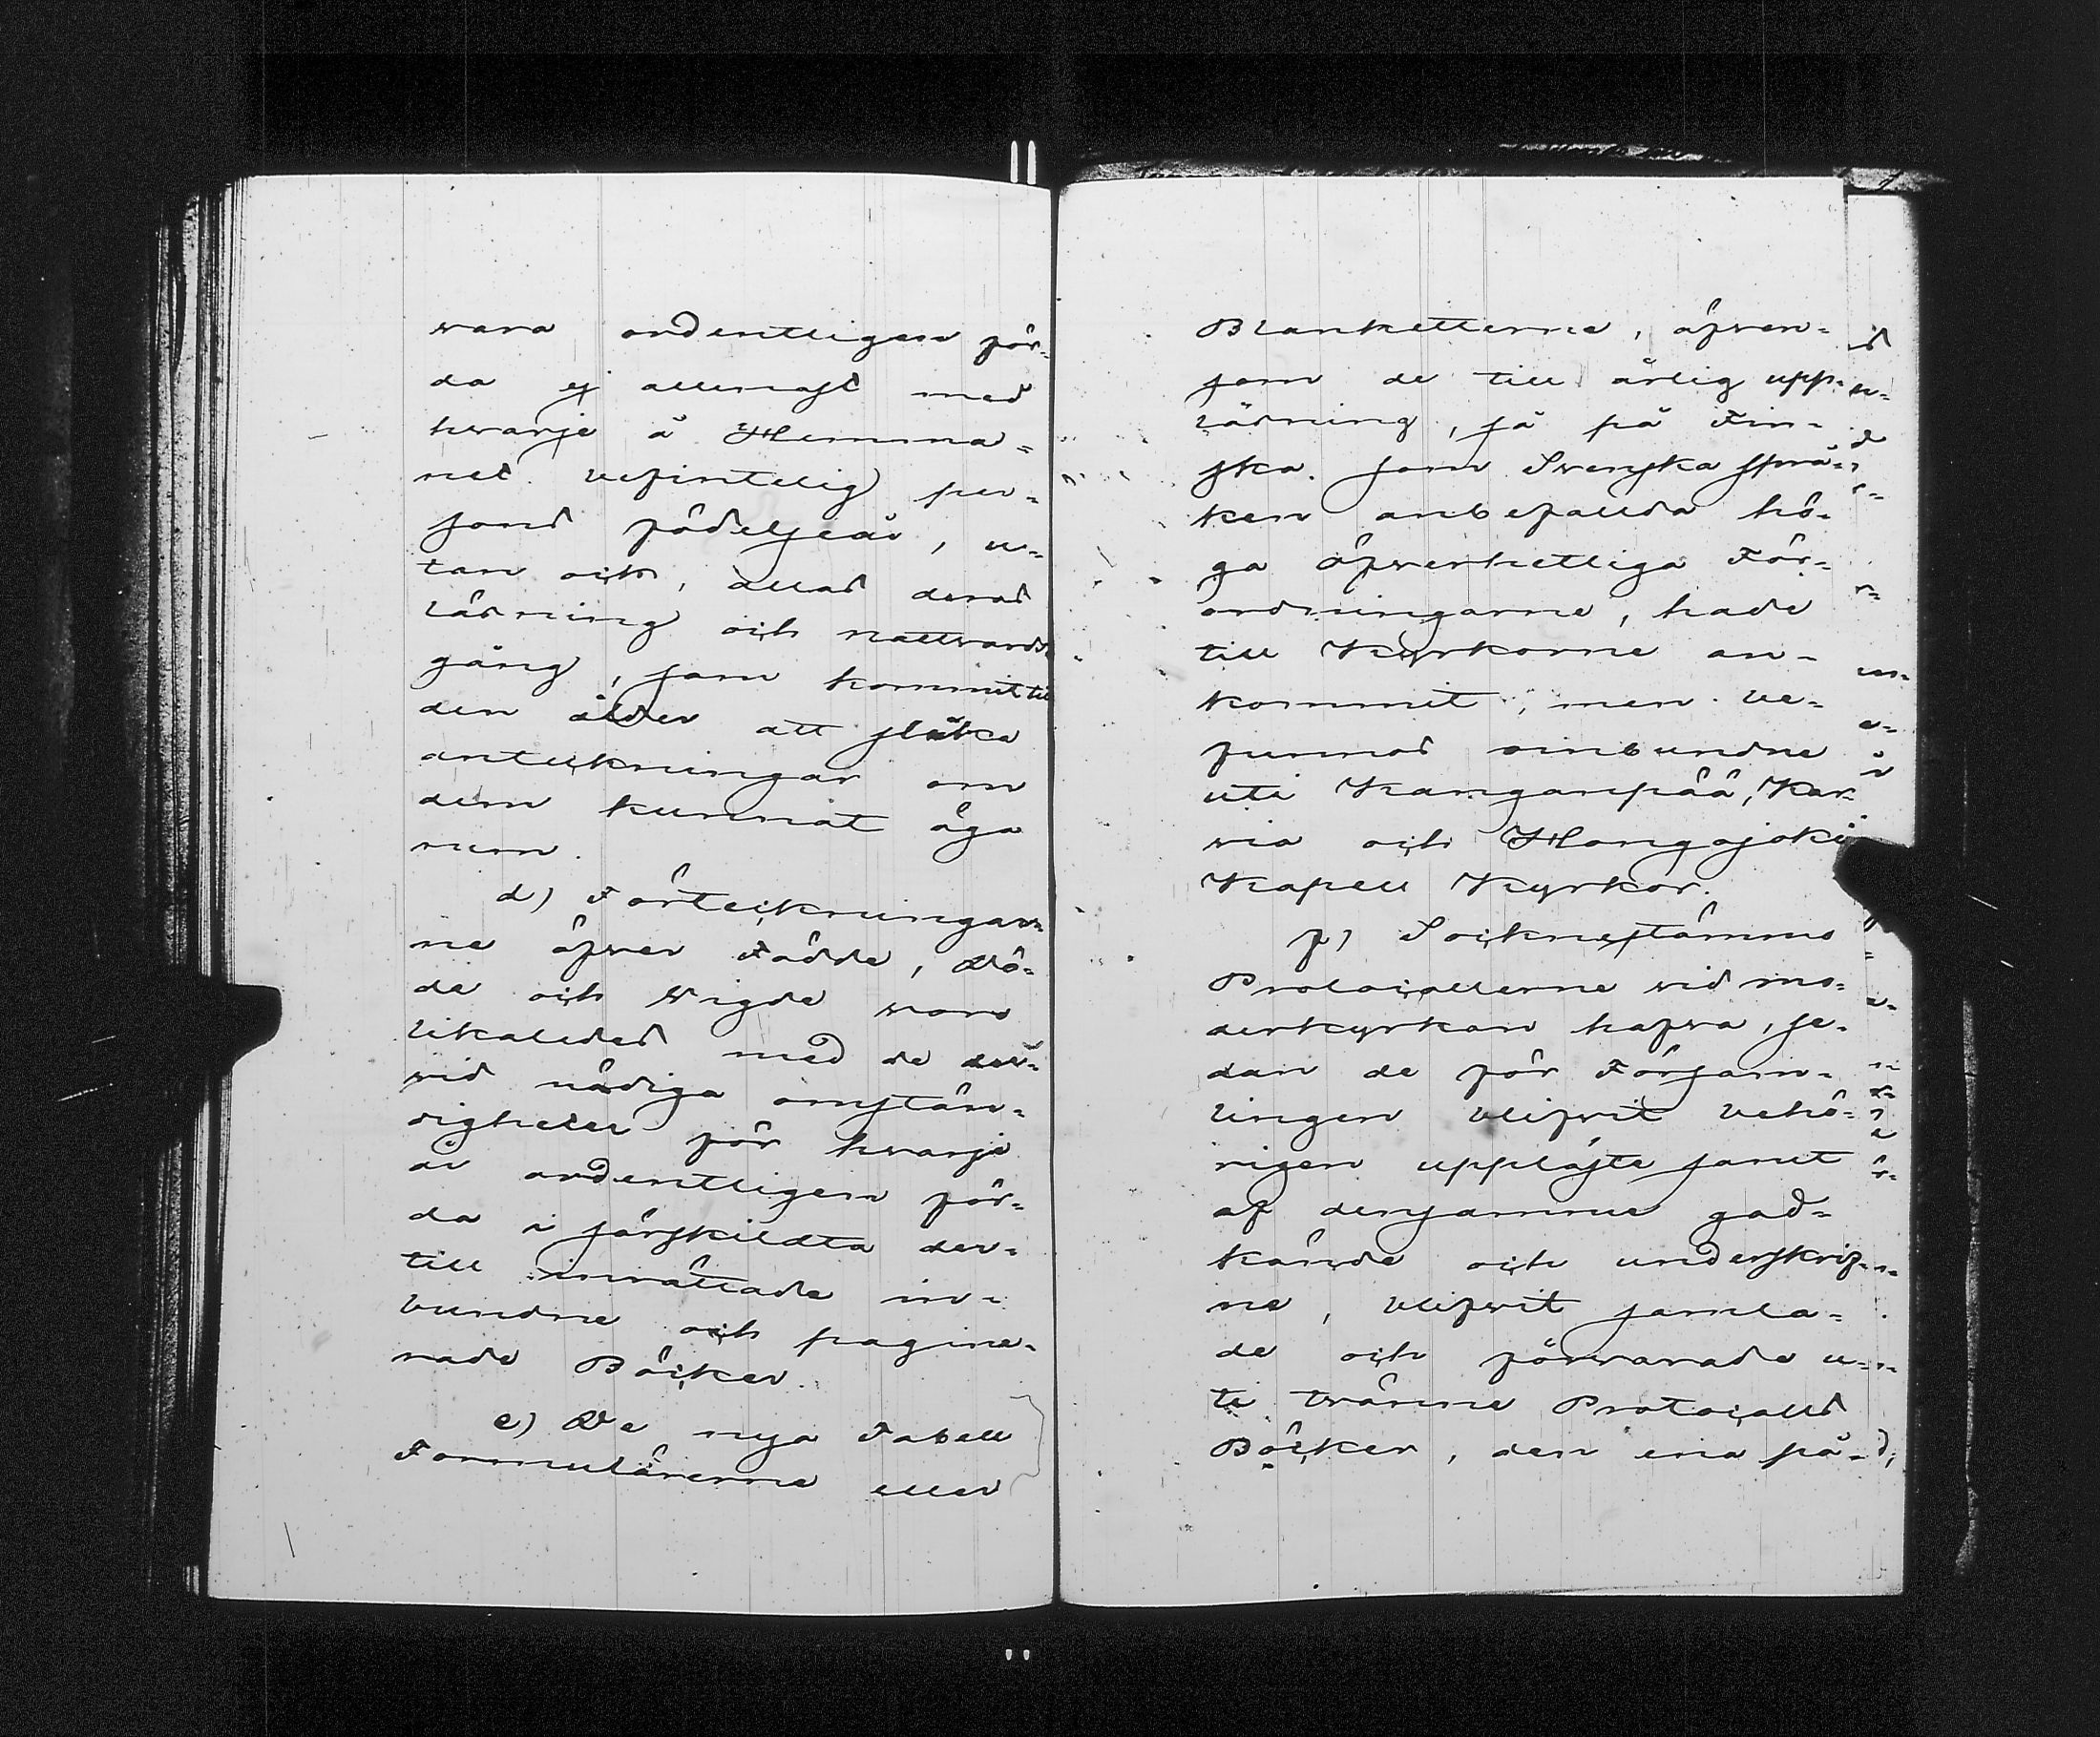 wara ordentligen för-
da ej allenast med
hvarje å Hemma=
net befintelig per=
sons födelseår, u=
tan ock, allas deras
läsning och nattvards
gång, som kommit till
den ålder att slika
anteckningar om
dem kunnat äga
rum.
d) Förteckningar=
ne öfver Födde, Dö=
de och Wigde woro
likaledes med de der=
vid nödiga omstän=
digheter för hvarje
år ordentligen för=
da i särskildta der=
till inrättade in=
bundne och pagine=
rade Böcker.
e) De nya Tabell
Formulärerne eller
Blanketterne, äfven=
som de till årlig upp-
läsning, så på Fin-
ska som Svenska språ=
ken anbefallda hö-
ga öfverhetliga För=
ordningarne, hade
till Kyrkorne an-
kommit, men be=
funnos oinbundne
uti Kanganpää, Kar-
via och Hongojoki
Kapell Kyrkor.
f) Sockenestämmo
Protocollerne vid mo=
derkyrkan hafva, se-
dan de för Försam-
lingen blifvit behö-
rigen uppläste samt
af densamme god=
kände och underskrif-
ne, blifvit samla=
de och förvarade u-
ti tvänne Protocolls
Böcker, den ena på-